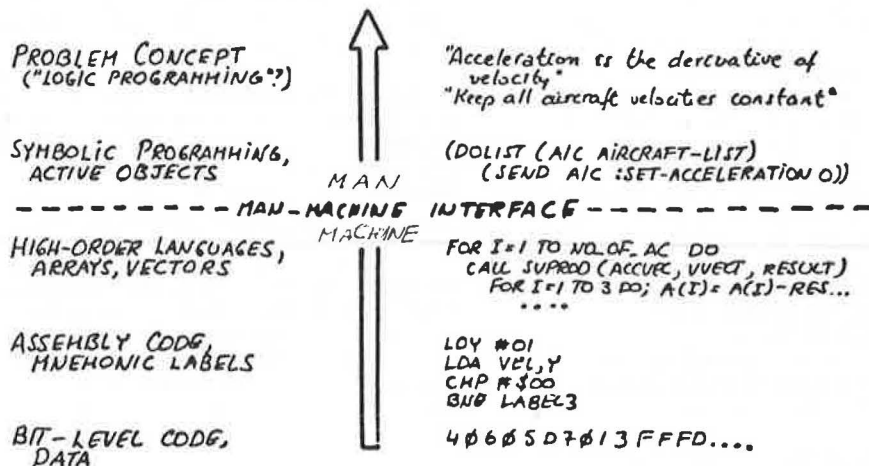 PROBLEM CONCEPT
("LOGIC PROGRAMMING"?)
"Acceleration is the derivative of
velocity"
"Keep all aircraft velocities constant"
SYMBOLIC PROGRAMMING,
ACTIVE OBJECTS
(DOLIST (A/C AIRCRAFT-LIST)
(SEND A/C :SET-ACCELERATION 0))
MAN
MAN-MACHINE INTERFACE
MACHINE
HIGH-ORDER LANGUAGES,
ARRAYS, VECTORS
FOR I=1 TO NO_OF_AC DO
CALL SVPROD (ACCVEC, VVECT, RESULT)
FOR I=1 TO 3 DO; A(I)= A(I)-RES...
....
ASSEMBLY CODE,
MNEMONIC LABELS
LDY #01
LDA VEL,Y
CMP #$00
BNE LABEL3
BIT-LEVEL CODE,
DATA
4060 5D7013FFFD....